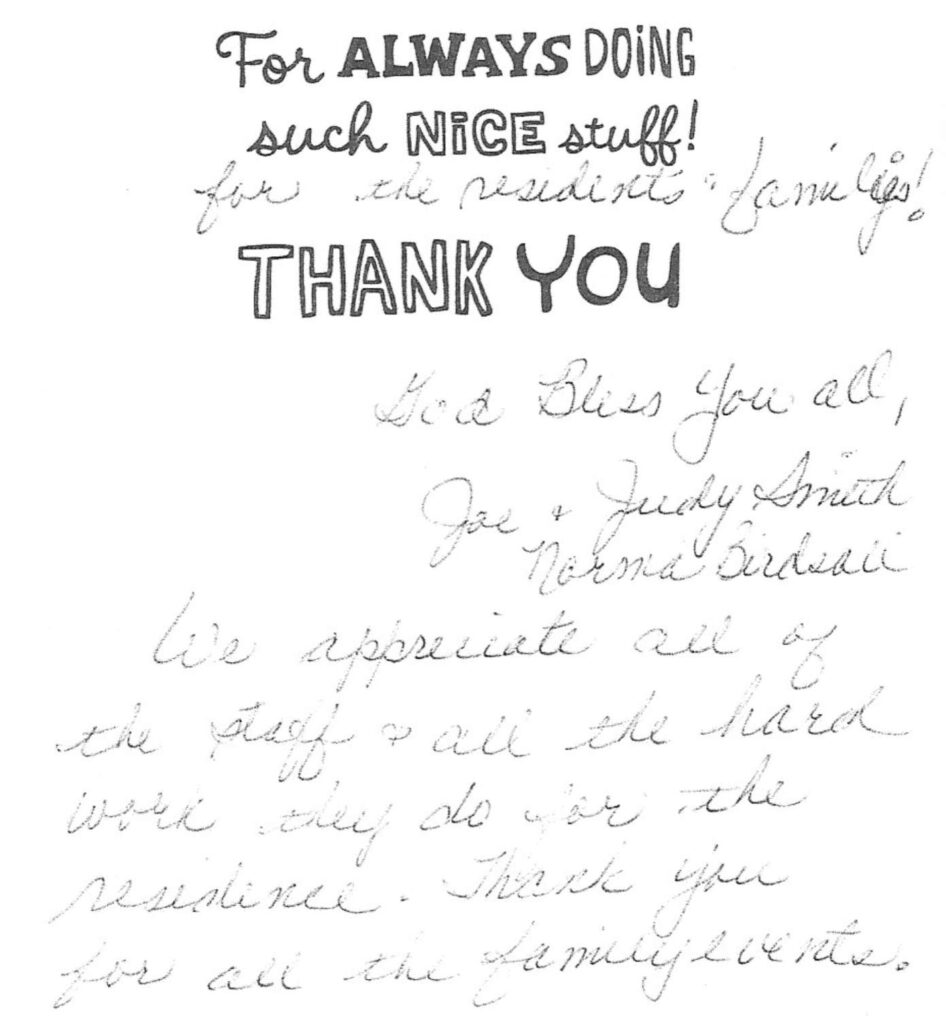 For ALWAYS DOING
such NICE stuff!
for the residents families!
THANK YOU
God Bless You all,
Joe + Judy Smith
Norma Birdsall
We appreciate all of
the staff & all the hard
work they do for the
residence. Thank you
for all the family events.